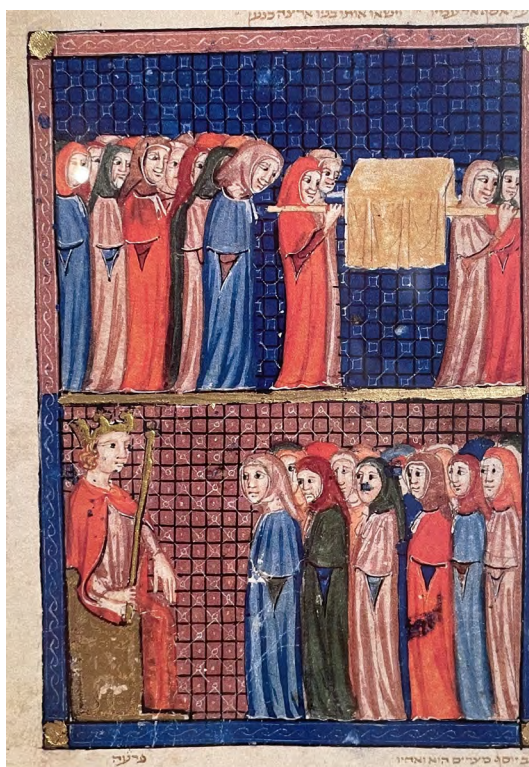 וישאו אותו בניו ארצה כנען
ב יוסף מצרים הוא ואחיו
פרעה